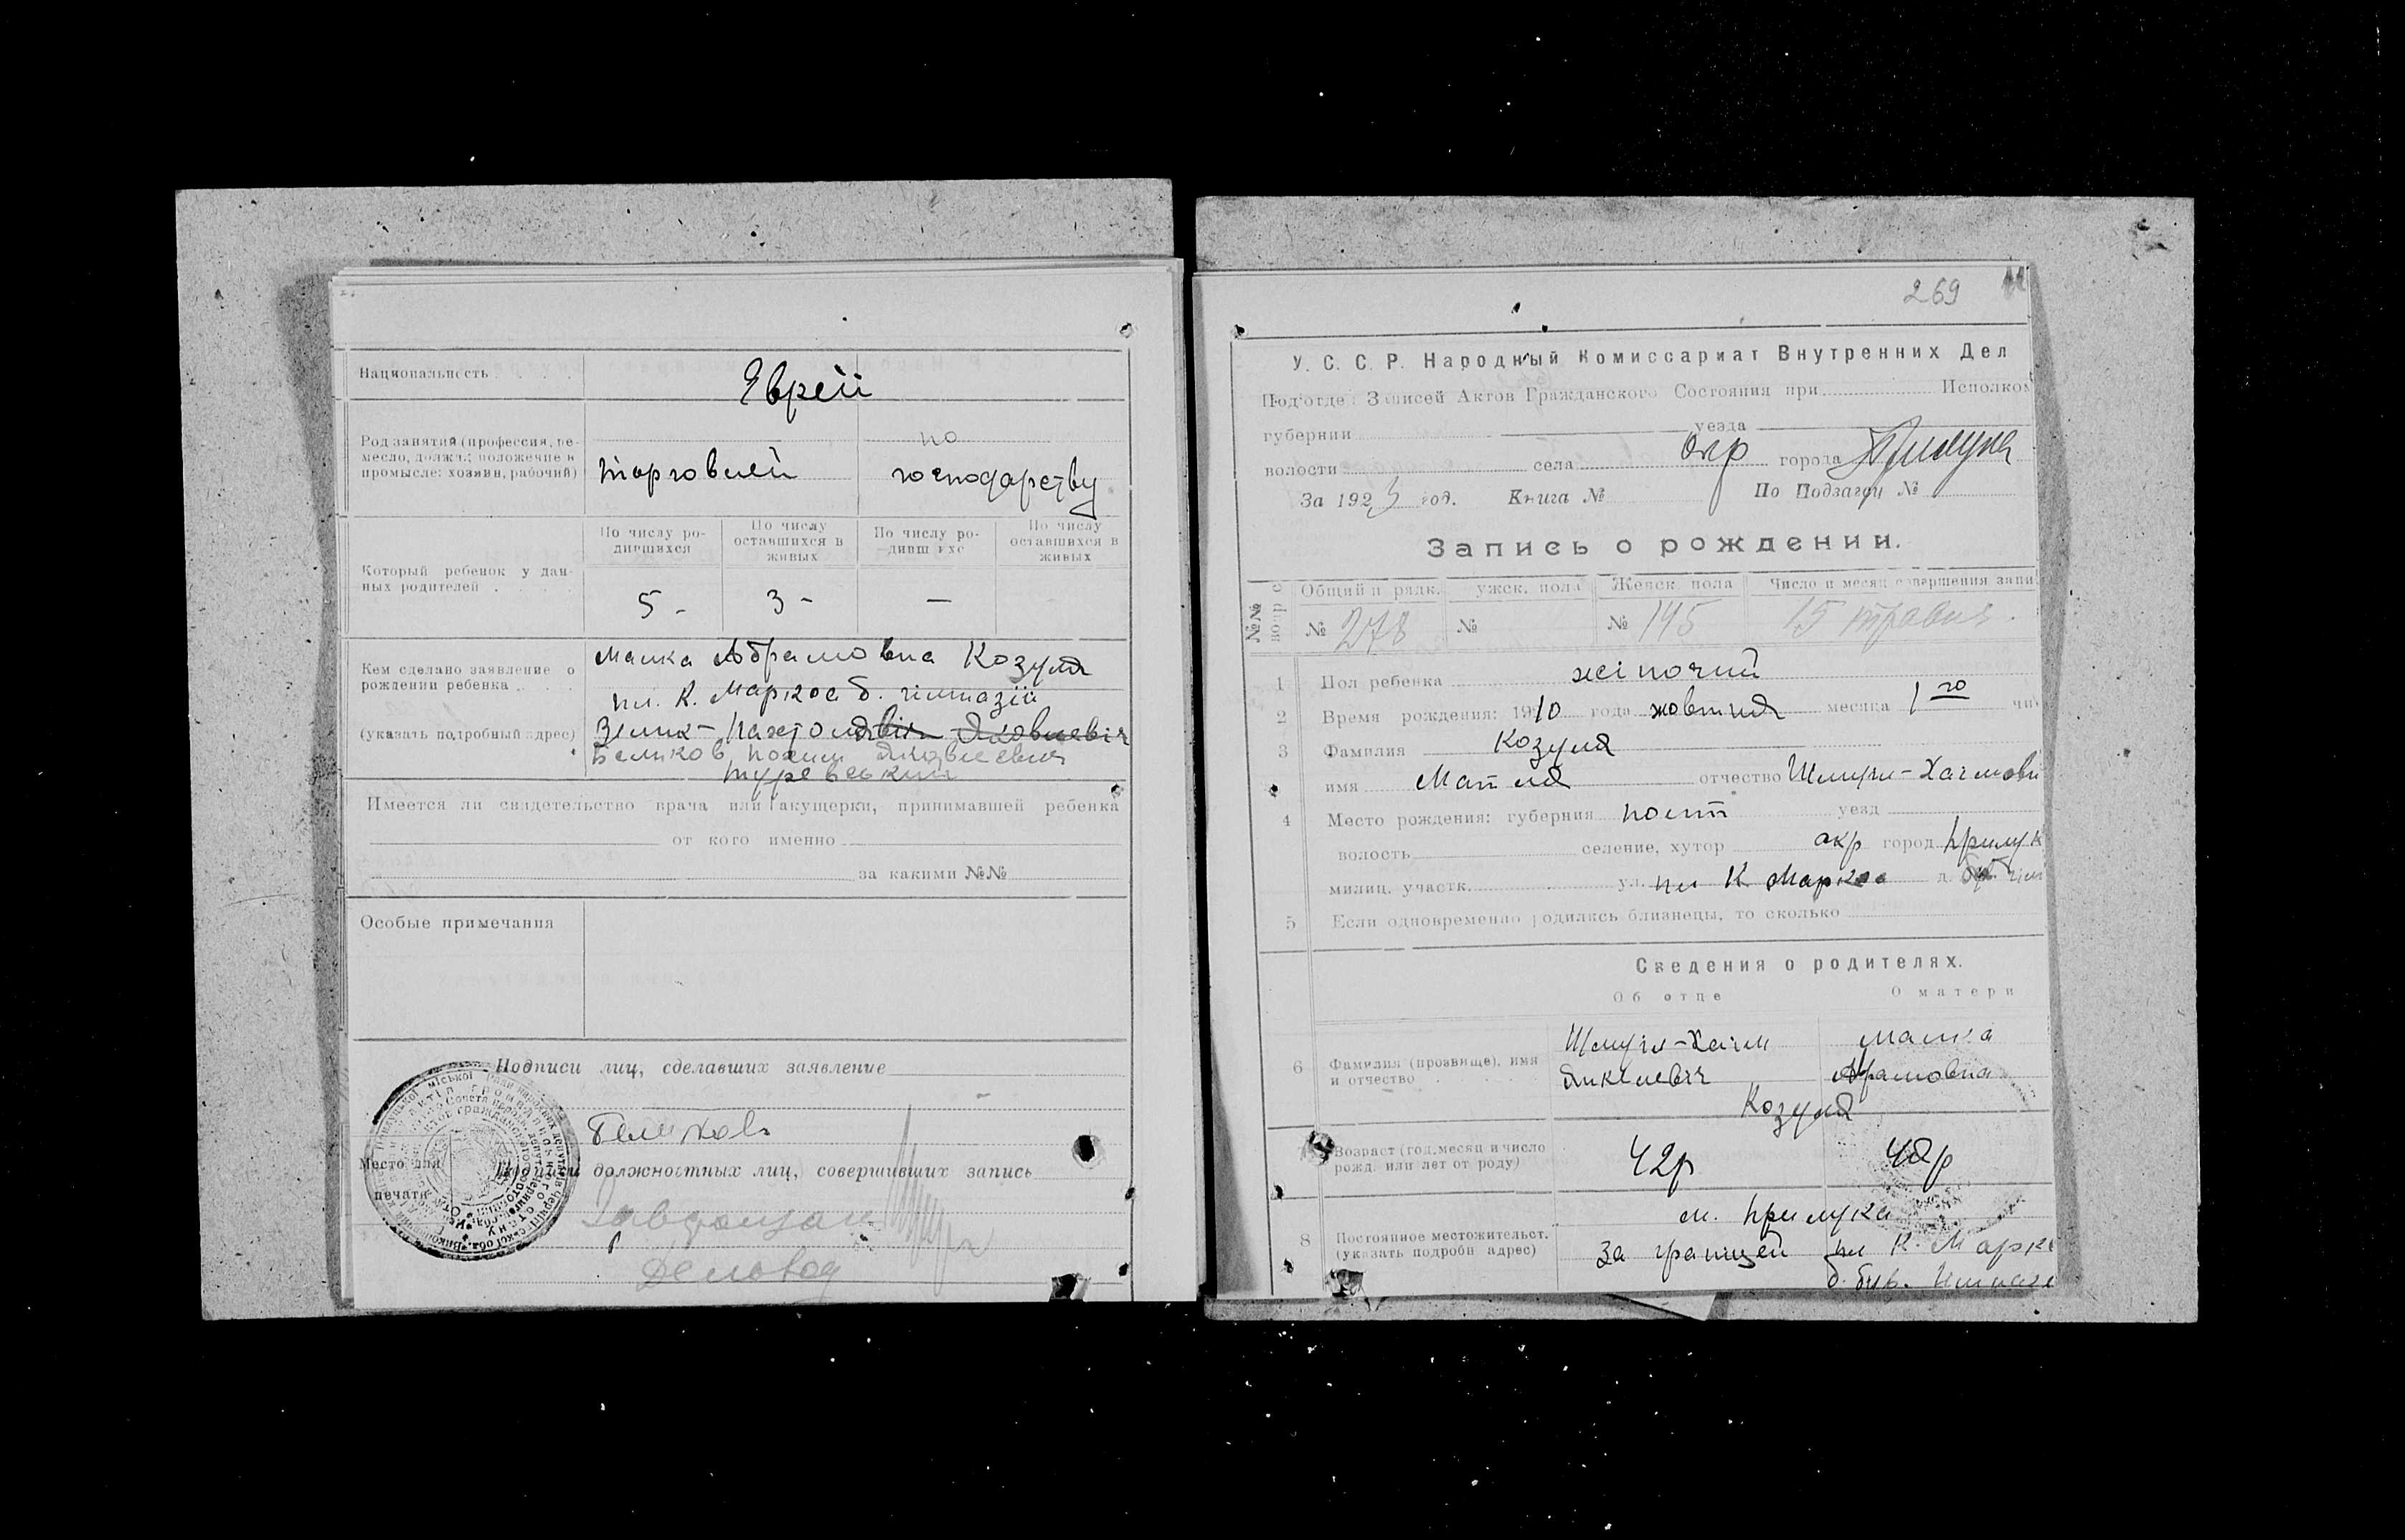 Национальность
Еврей
Род занятий (профессия, ремесло, должн., положение в промысле: хозяин, рабочий)
торговлей
по господарству
Который ребенок у данных родителей
По числу родившихся
По числу оставшихся в живых
По числу родивш ихс
По числу оставшихся в живых
5 -
3 -
—
Кем сделано заявление о рождении ребенка
(указать подробный адрес)
Малка Абрамовна Козуля
пл. К. Маркса б. гімназії
Беликов
Имеется ли свидетельство врача или акушерки, принимавшей ребенка
от кого именно
за какими №№
Особые примечания
Подписи лиц, сделавших заявление
Место для печати
Подписи должностных лиц, совершивших запись
Деловод
269
У. С. С. Р. Народный Комиссариат Внутренних Дел
Под'отдел Записей Актов Гражданского Состояния при Исполком
губернии уезда
волости села окр города Прилука
За 1923 год. Книга № По Подзагол №
Запись о рождении.
№№
Общий п рядк.
ужск. пола
Женск. пола
Число и месяц совершения запи
№ 278
№
№ 145
15 травня.
1 Пол ребенка жіночий
2 Время рождения: 1910 года жовтня месяца 1го чи
3 Фамилия Козуля
имя отчество Шмуль-Хаимови
4 Место рождения: губерния Полт уезд
волость селение, хутор окр город Прилук
милиц. участк. ул. пл К Маркса д.
5 Если одновременно родились близнецы, то сколько
Сведения о родителях.
Об отце
О матери
6 Фамилия (прозвище), имя и отчество
Шмуль-Хаим
Малка
Абрамовна
Козуля
7 Возраст (год, месяц и число рожд. или лет от роду)
42р
8 Постоянное местожительст. (указать подробн адрес)
м. Прилука
За границей
пл К. Маркс